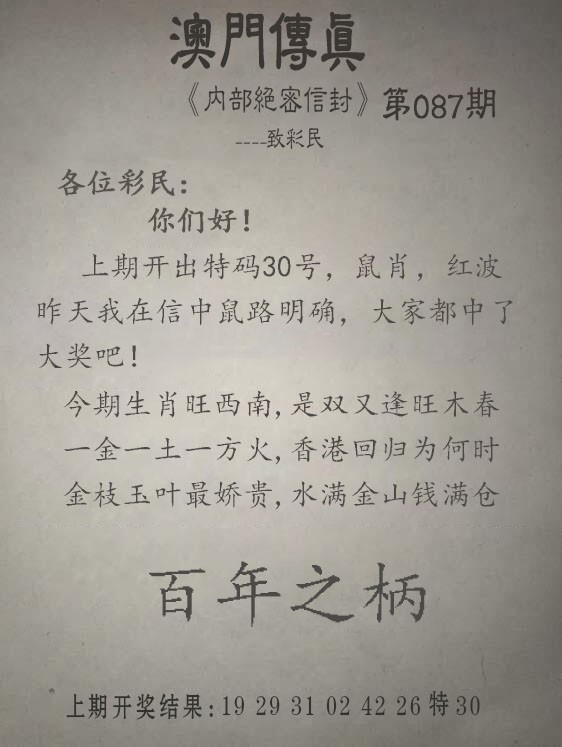 澳門傳眞
《内部絕密信封》第087期
----致彩民
各位彩民:
你们好!
上期开出特码30号，鼠肖，红波
昨天我在信中鼠路明确，大家都中了
大奖吧!
今期生肖旺西南,是双又逢旺木春
一金一土一方火,香港回归为何时
金枝玉叶最娇贵,水满金山钱满仓
百年之柄
上期开奖结果:19 29 31 02 42 26 特30